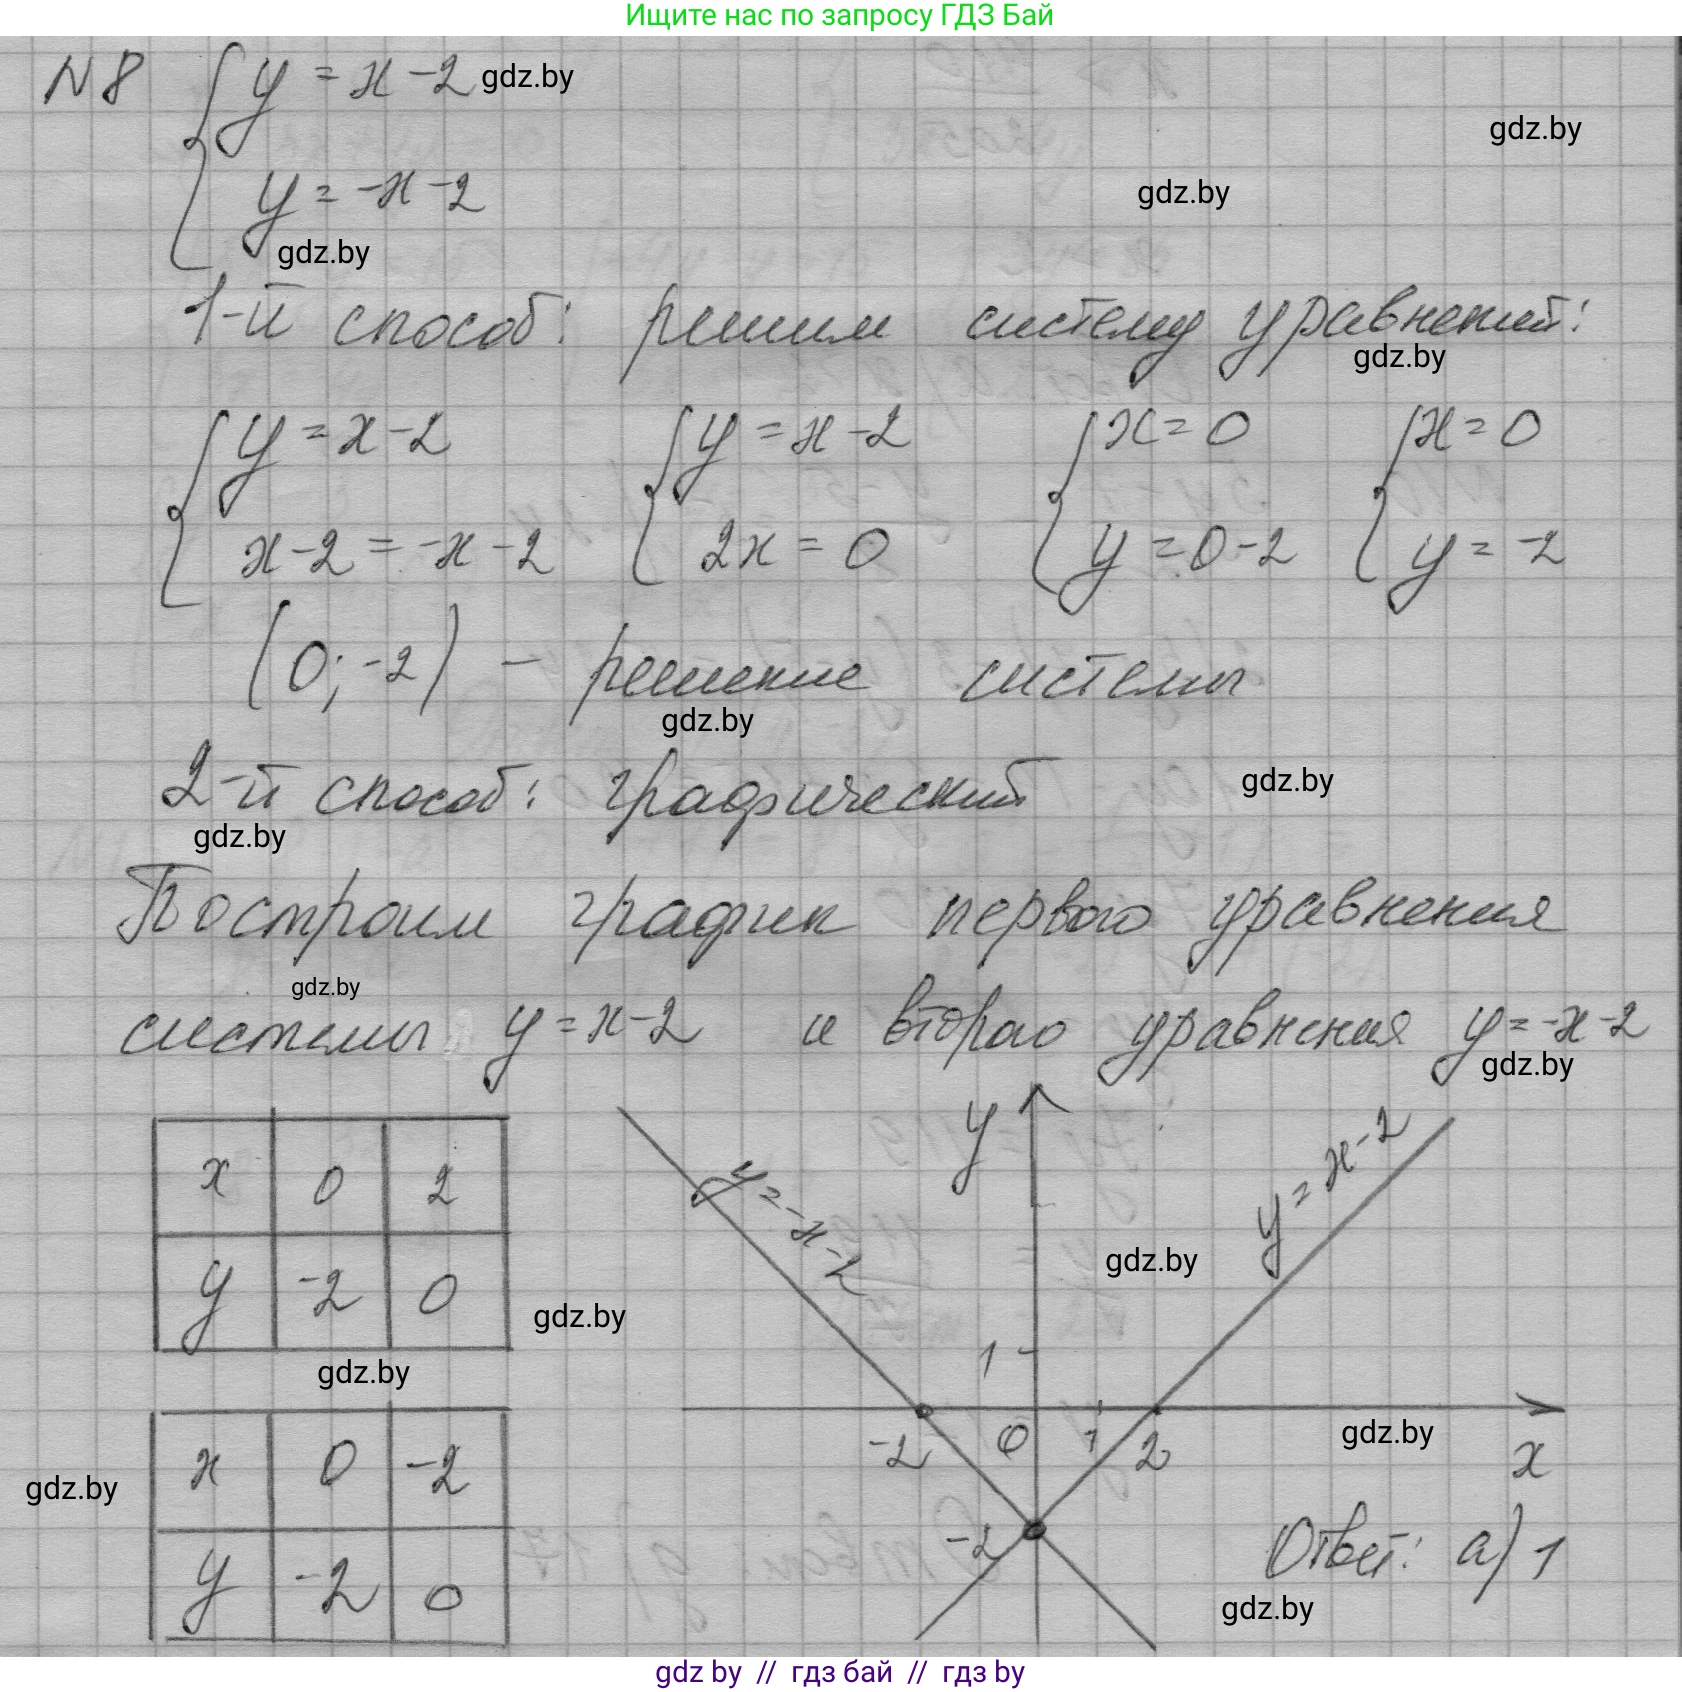 Ищите нас по запросу ГДЗ Бай
N8 { y = x - 2 gdz.by
gdz.by
y = -x - 2 gdz.by
gdz.by
1-й способ: решим систему уравнений:
gdz.by
{ y = x - 2 { y = x - 2 { x = 0 { x = 0
x - 2 = -x - 2 2x = 0 y = 0 - 2 y = -2
(0; -2) - решение системы
gdz.by
2-й способ: графический gdz.by
gdz.by
Построим график первого уравнения
gdz.by
системы y = x - 2 и второго уравнения y = -x - 2
gdz.by
x 0 2
y -2 0
gdz.by
gdz.by
x 0 -2
y -2 0
gdz.by
y
y = -x - 2
y = x - 2
gdz.by
1
-2 0 1 2 x
gdz.by
-2
Ответ: а) 1
gdz.by
gdz by // гдз бай // гдз by